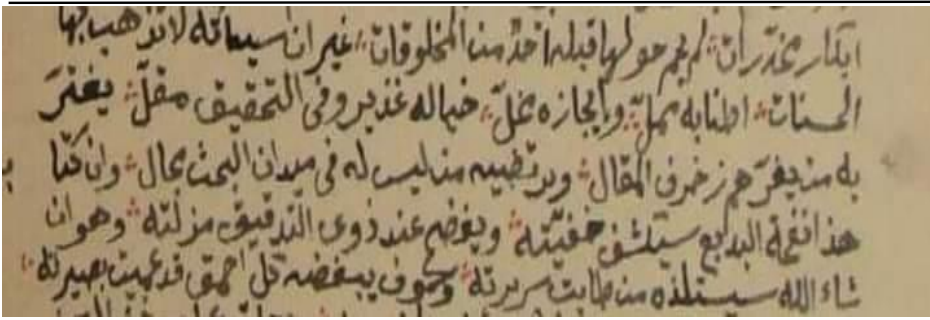 ابكار مخدرات لم يحم حولها قبله احد من المخلوقات غير ان سيئاته لا تذهب بها
الحسنات اطنابه ممل وايجازه مخل خياله غذير وفى التحقيق مقل يغتر
به من يغرهم زخرف المقال ويرتضيه من ليس له فى ميدان البحث مجال وان كتا
هذا نغمة البديع ستكشف خفيته ويفضح عند ذوى التدقيق مزلته وهو ان
شاء الله سيستلذه من طابت سريرته وسوف يبغضه كل احمق قد عميت بصيرته